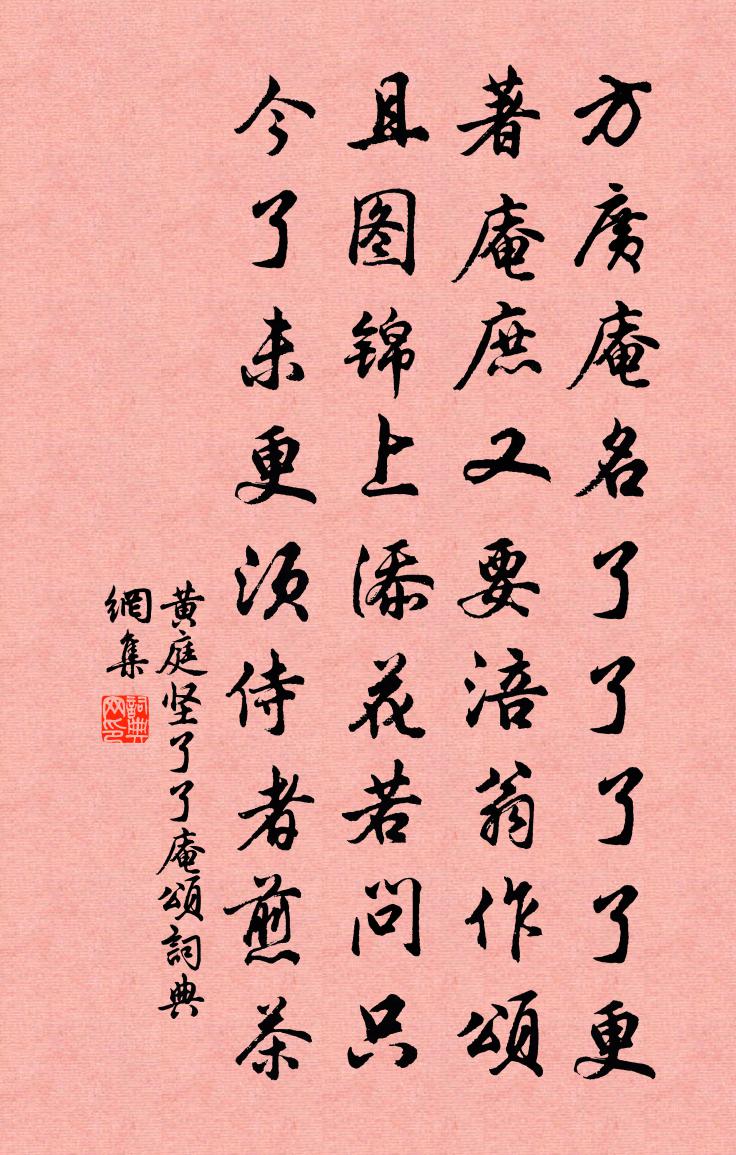 方廣庵名了了了了更
著庵庶又要涪翁作頌
且图锦上添花若问只
今了未更须侍者煎茶
黄庭坚了了庵頌詞典
網集
詞典网印